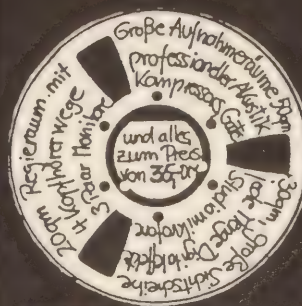 Große Aufnahmeräume 50qm
professioneller Akustik
Kompressors, Gate
30qm, Große Sichtscheibe
jede Menge Digitaleffekte
Studiomikrofone
20qm Regieraum mit
4 Kopfhörerwege
3 Paar Monitore
und alles
zum Preis
von 35,-DM